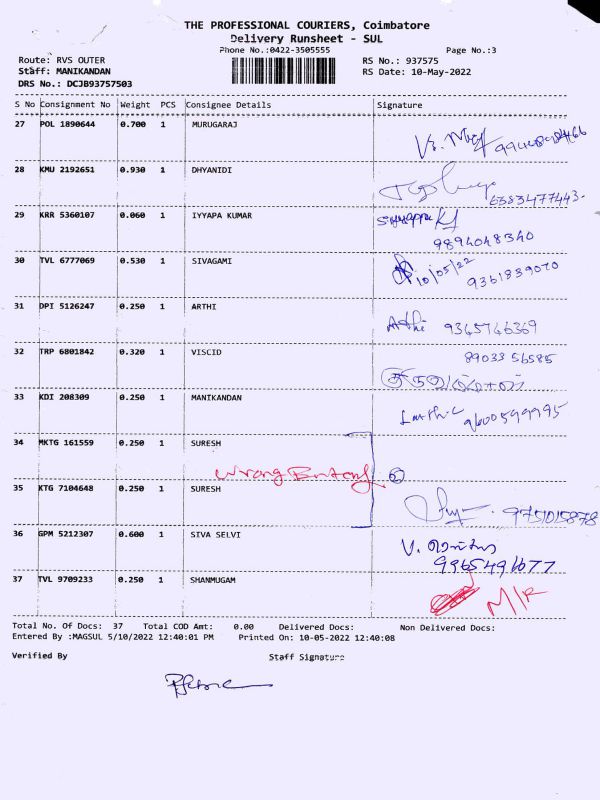 THE PROFESSIONAL COURIERS, Coimbatore
Delivery Runsheet - SUL
Phone No.:0422-3505555
Page No.:3
Route: RVS OUTER
RS No.: 937575
Staff: MANIKANDAN
RS Date: 10-May-2022
DRS No.: DCJB93757503
S No Consignment No Weight PCS Consignee Details Signature
27 POL 1890644 0.700 1 MURUGARAJ
28 KMU 2192651 0.930 1 DHYANIDI
6383477443.
29 KRR 5360107 0.060 1 IYYAPA KUMAR
9894048340
30 TVL 6777069 0.530 1 SIVAGAMI
10/05/22 9361839070
31 DPI 5126247 0.250 1 ARTHI
Arthi 9365746369
32 TRP 6801842 0.320 1 VISCID
8903356585
33 KDI 208309 0.250 1 MANIKANDAN
9600599995
34 MKTG 161559 0.250 1 SURESH
Wrong
35 KTG 7104648 0.250 1 SURESH
9751015878
36 GPM 5212307 0.600 1 SIVA SELVI
9965496077
37 TVL 9709233 0.250 1 SHANMUGAM
M/R
Total No. Of Docs: 37 Total COD Amt: 0.00 Delivered Docs: Non Delivered Docs:
Entered By :MAGSUL 5/10/2022 12:40:01 PM Printed On: 10-05-2022 12:40:08
Verified By Staff Signature